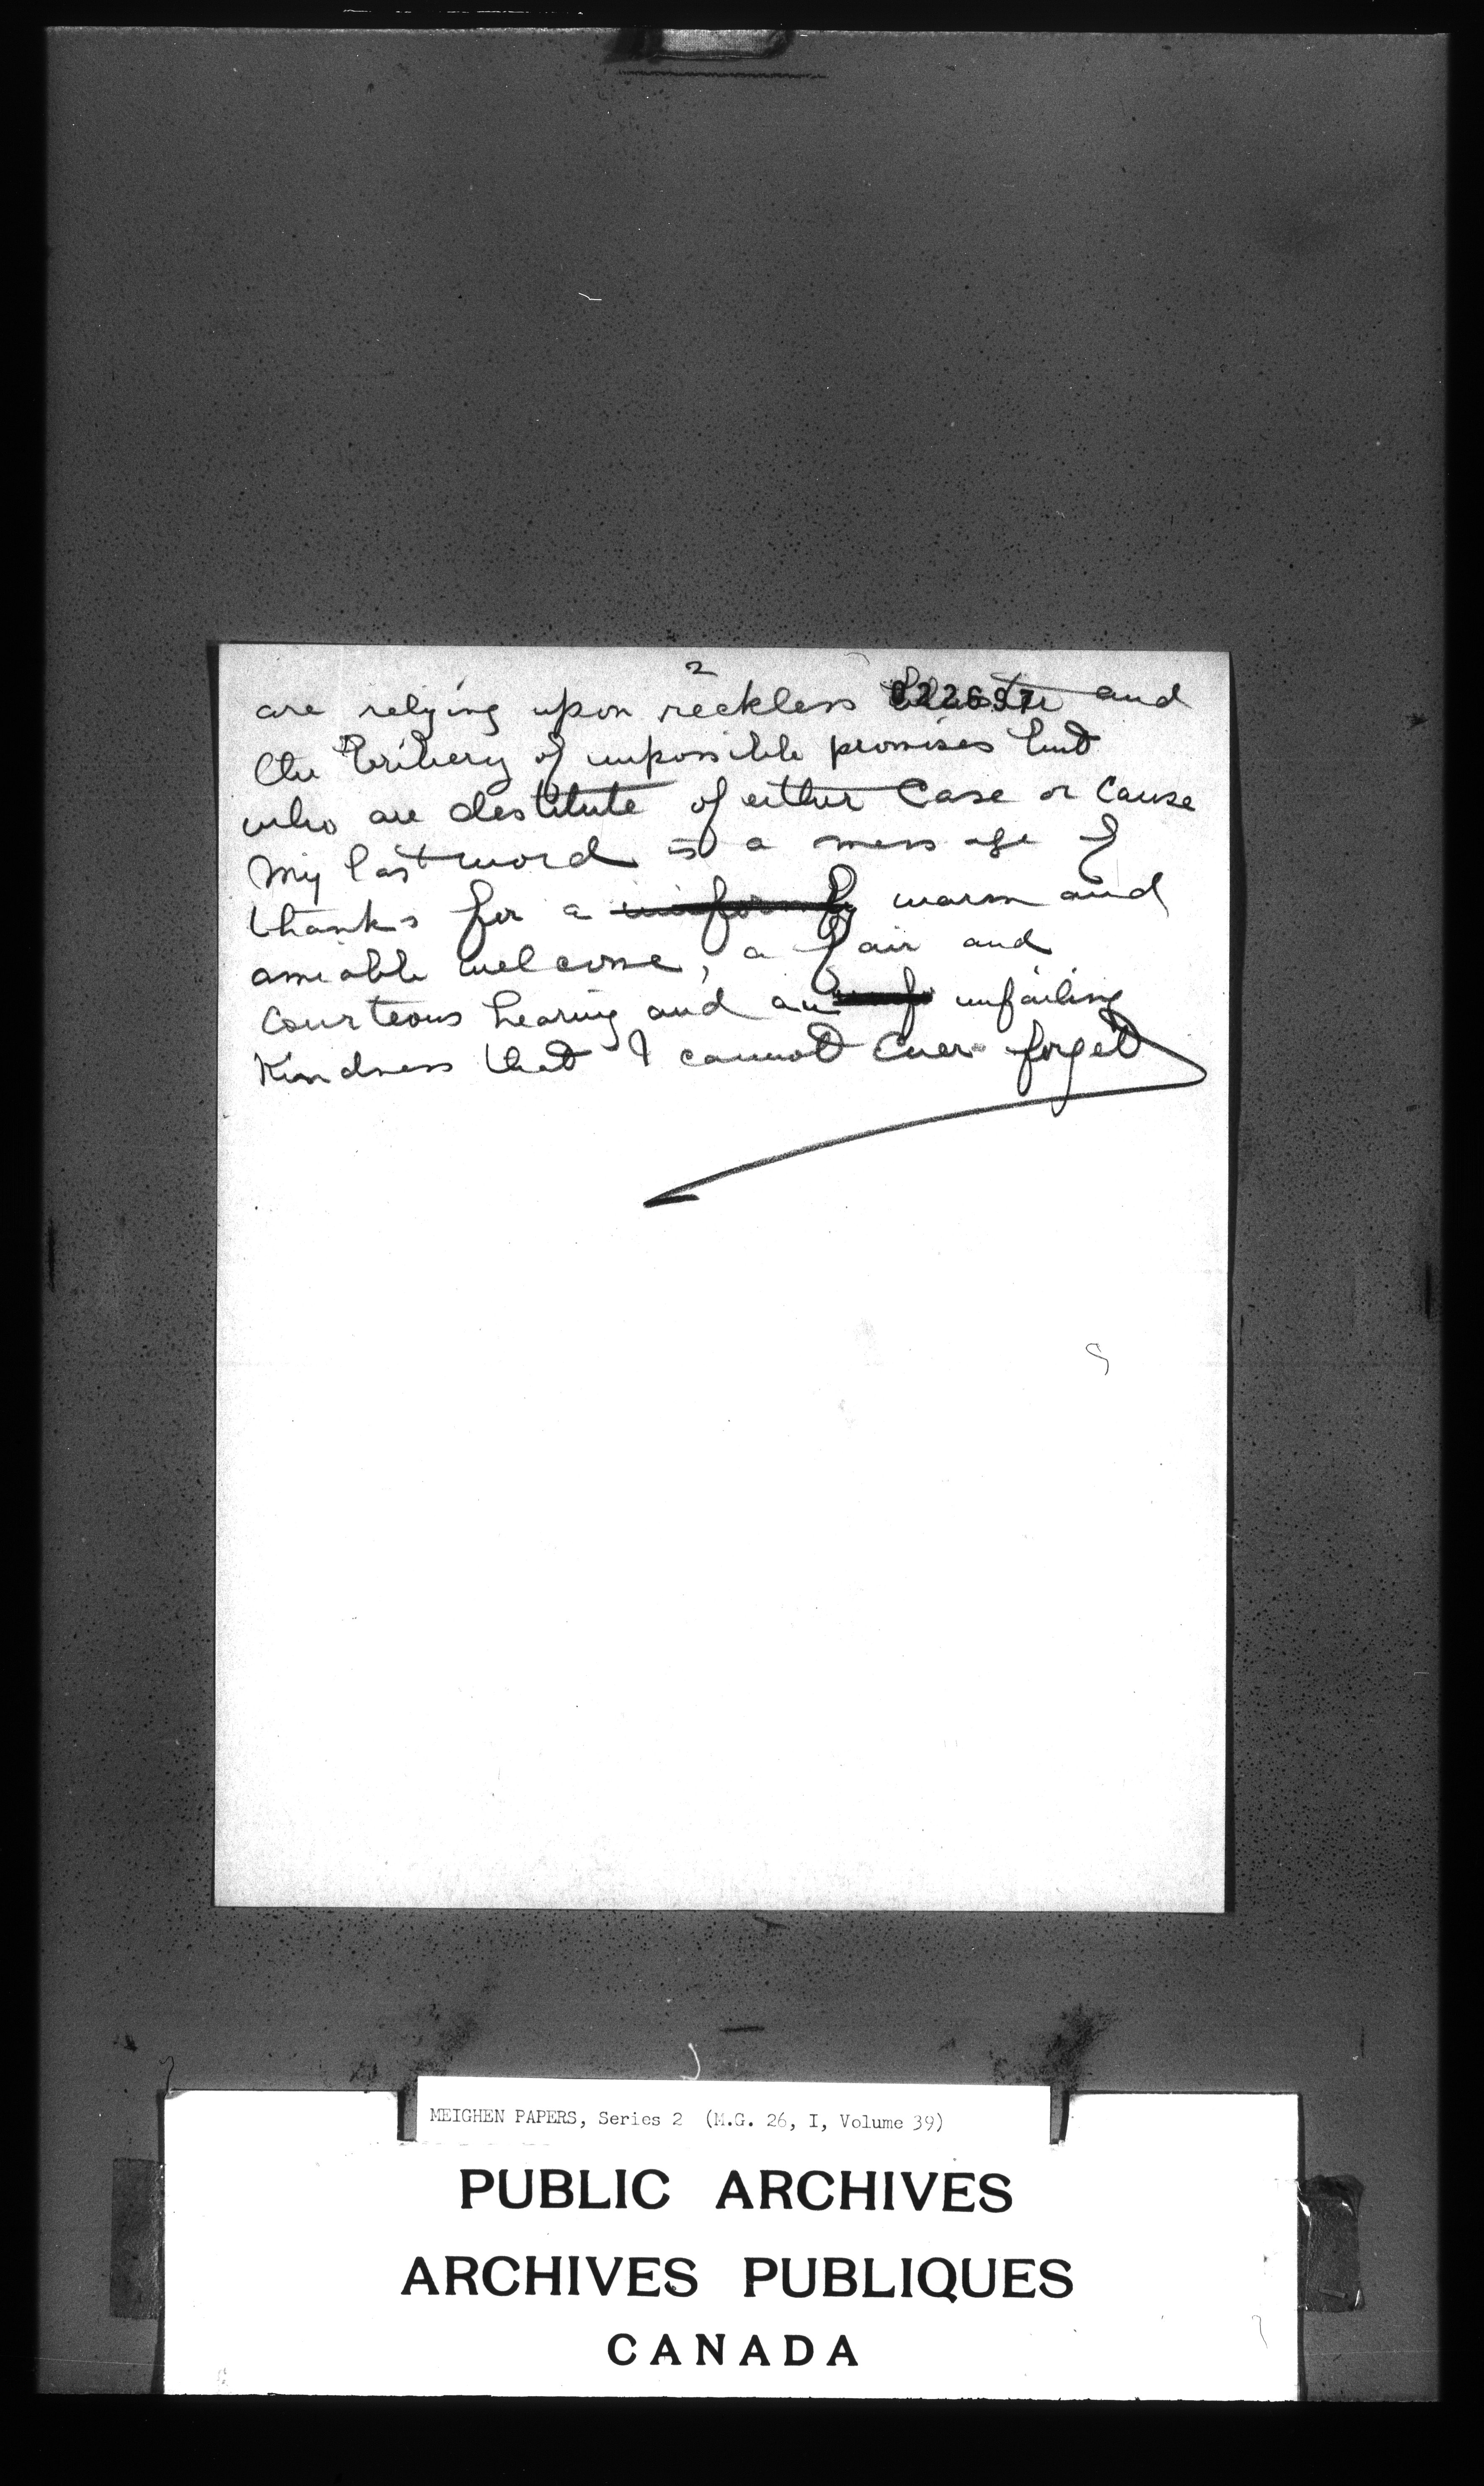 2
022697
are relying upon reckless bluster and
the bribery of impossible promises but
who are destitute of either Case or Cause
My last word is a message of
thanks for a uniformly warm and
amiable welcome, a fair and
courteous hearing and an unfailing
Kindness that I cannot ever forget
MEIGHEN PAPERS, Series 2 (M.G. 26, I, Volume 39)
PUBLIC ARCHIVES
ARCHIVES PUBLIQUES
CANADA